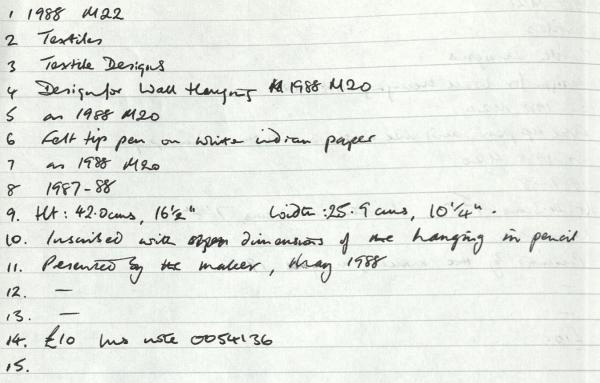 1 1988 M22
2 Textiles
3 Textile Designs
4 Design for Wall Hanging 1988 M20
5 as 1988 M20
6 Felt tip pen on white indian paper
7 as 1988 M20
8 1987-88
9. Ht: 42.0cms, 16½" Width: 25.9cms, 10¼".
10. Inscribed with dimensions of the hanging in pencil
11. Presented by the maker, May 1988
12. —
13. —
14. £10 Ins note 0054136
15.